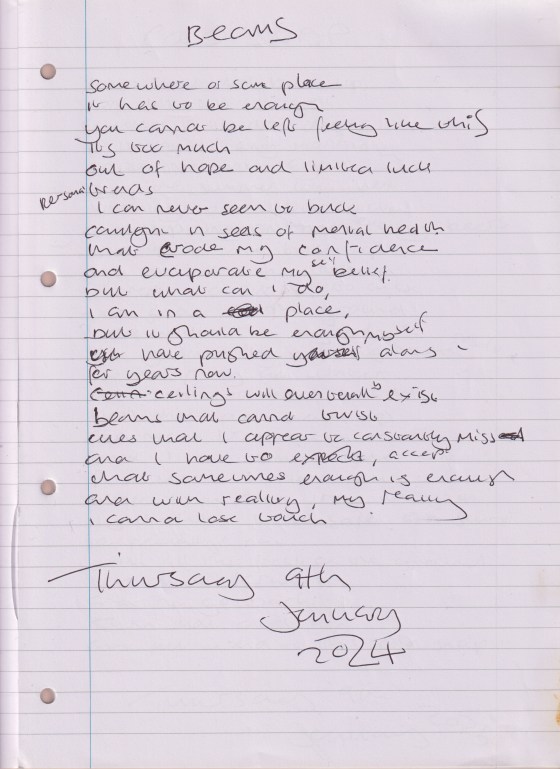 Beams
somewhere or some place
it has to be enough
you cannot be left feeling like this
It's too much
out of hope and limited luck
personal trends
I can never seem to buck
caught in seas of mental health
that erode my confidence
and evaporate my self belief.
but what can I do,
I am in a place,
but it should be enough myself
have pushed along
for years now.
ceilings will eventually exist
beams that cannot twist
ones that I appear to constantly miss
and I have to expect, accept
that sometimes enough is enough
and with reality, my reality
I cannot lose touch
Thursday 9th
January
2024